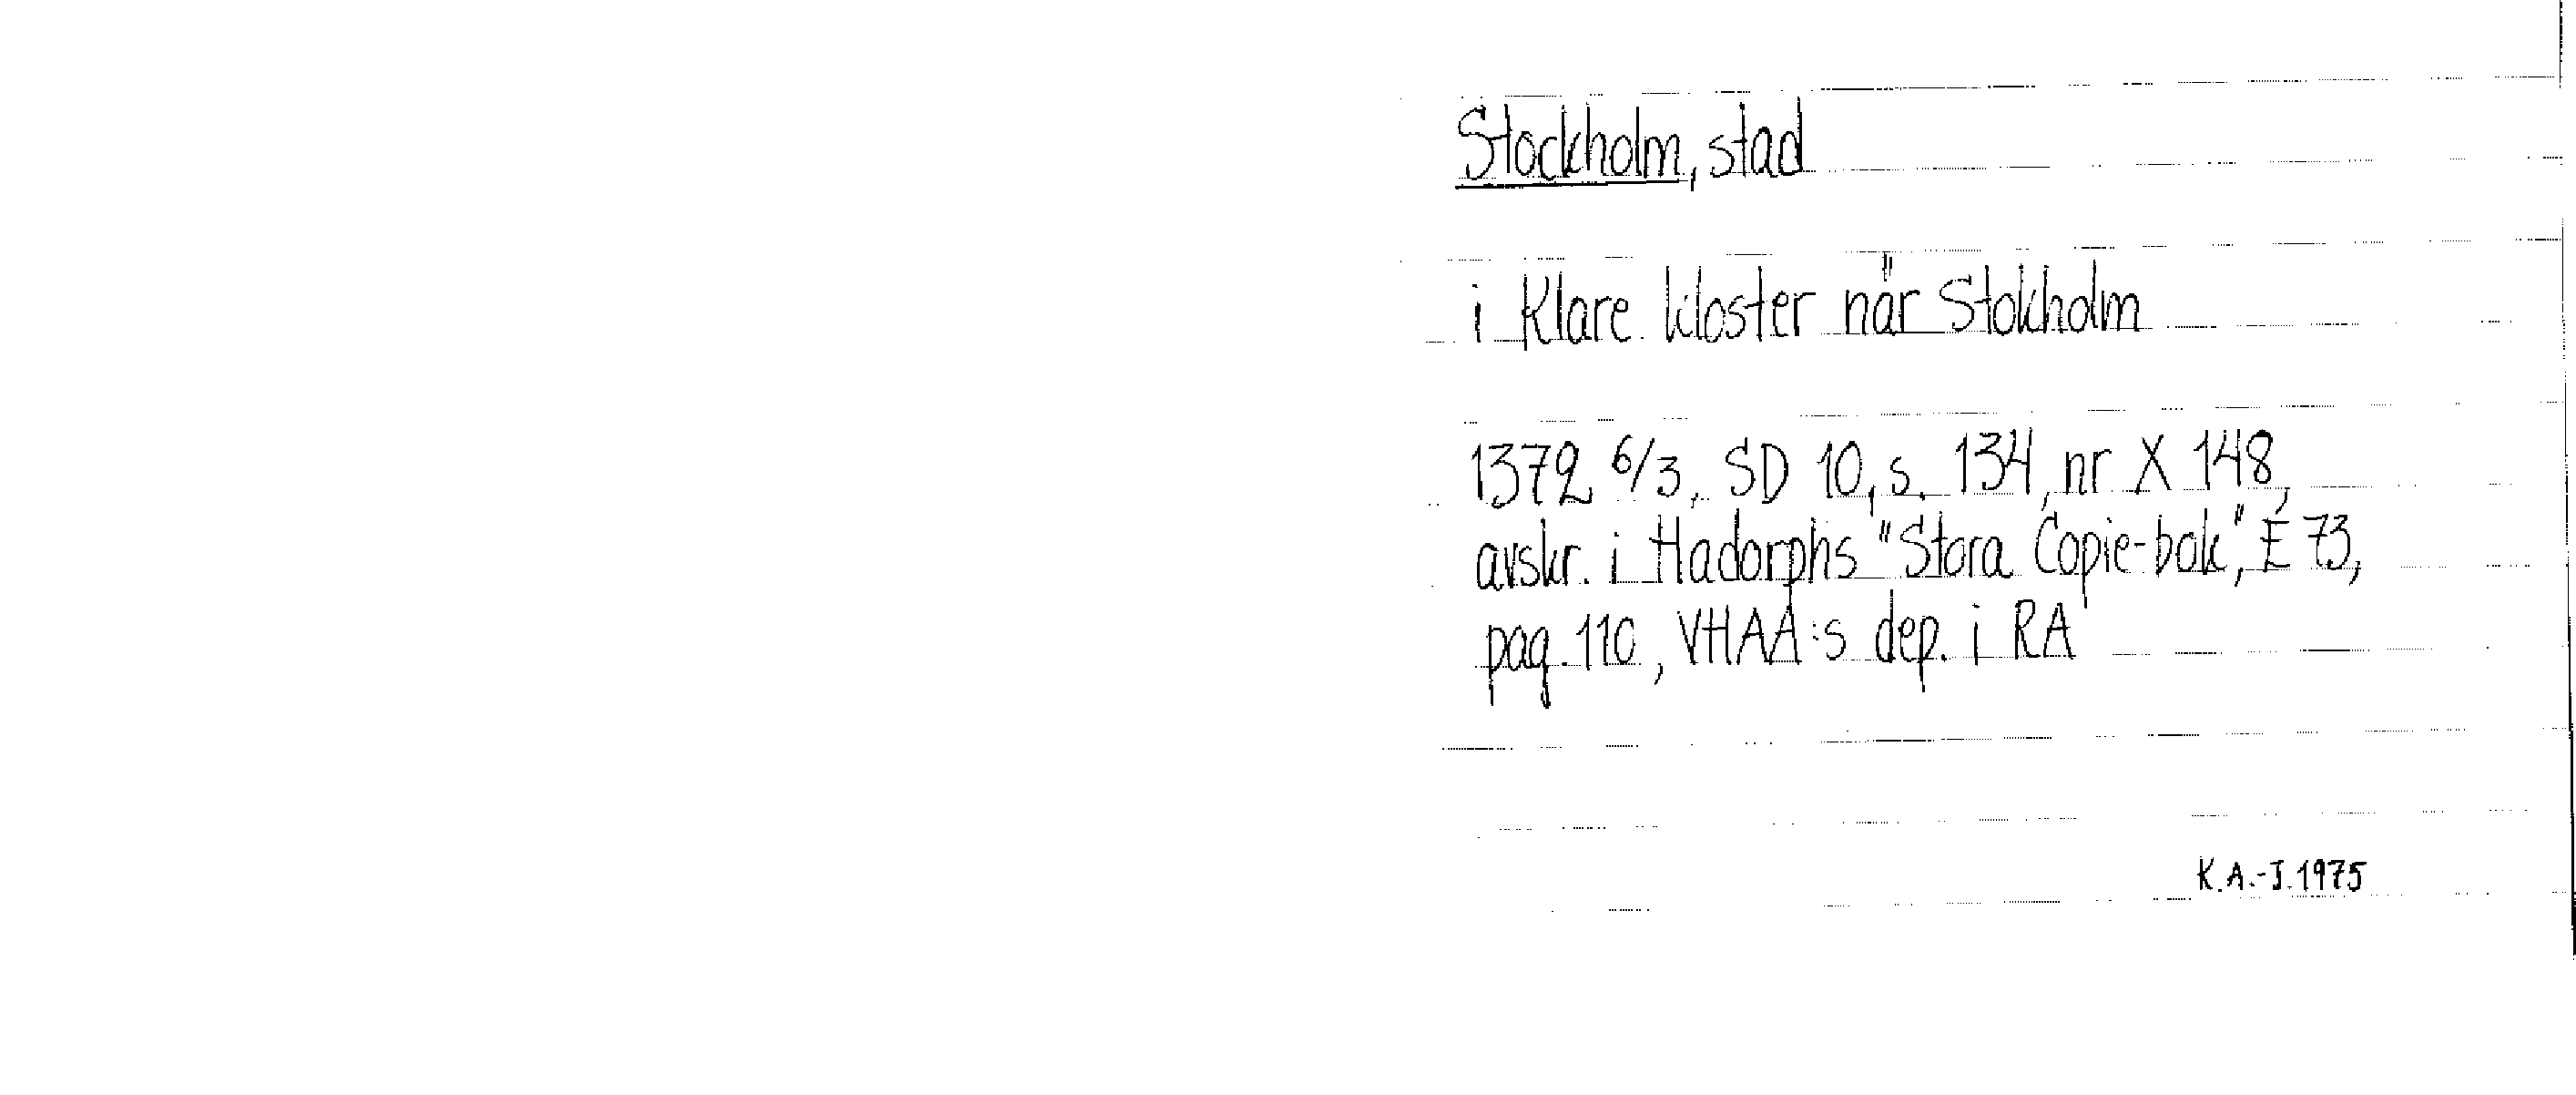 Stockholm, stad
i Klare kloster när Stokholm
1372 6/3, SD 10, s. 134, nr X 148,
avskr. i Hadorphs "Stora Copie-bok", E 73,
pag. 110, VHAA:s dep. i RA
K.A.-J. 1975